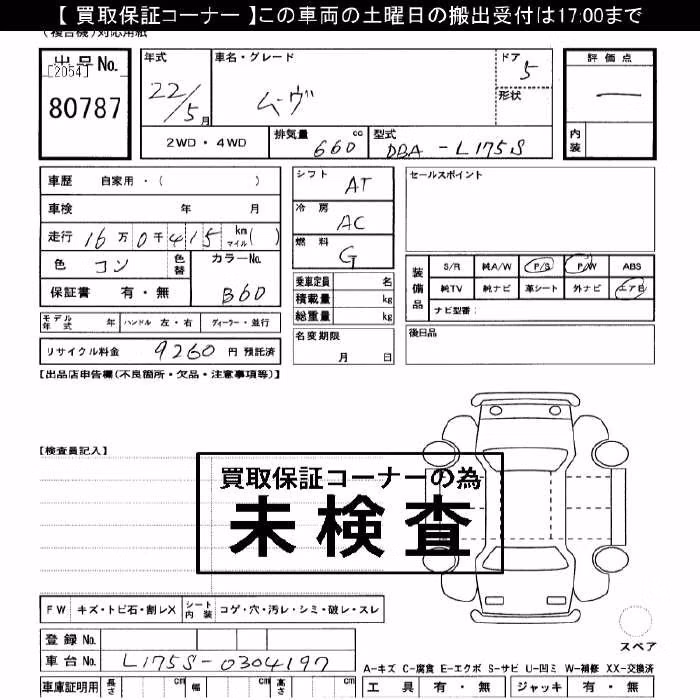 【 買取保証コーナー 】この車両の土曜日の搬出受付は17:00まで
(複合機)対応用紙
出品No.
[2054]
80787
年式
22/5月
車名・グレード
ムーヴ
ドア
5
形状
評価点
―
内装
2WD・4WD
排気量 660 cc
型式 DBA-L175S
車歴 自家用・( )
車検 年 月
走行 16万0千415 km マイル( )
色 コン 色替
カラーNo.
B60
保証書 有・無
シフト AT
冷房 AC
燃料 G
乗車定員 名
積載量 kg
総重量 kg
名変期限
月 日
セールスポイント
装備品
S/R 純A/W P/S P/W ABS
純TV 純ナビ 革シート 外ナビ エアB
ナビ型番:
後日品
モデル年式 年 ハンドル 左・右 ディーラー・並行
リサイクル料金 9260 円 預託済
【出品店申告欄(不良箇所・欠品・注意事項等)】
【検査員記入】
買取保証コーナーの為
未検査
FW キズ・トビ石・割レX シート内装 コゲ・穴・汚レ・シミ・破レ・スレ
登録No.
車台No. L175S-0304197
車庫証明用 長さ cm 幅 cm 高さ cm
スペア
A-キズ C-腐食 E-エクボ S-サビ U-凹ミ W-補修 XX-交換済
工具 有・無 ジャッキ 有・無